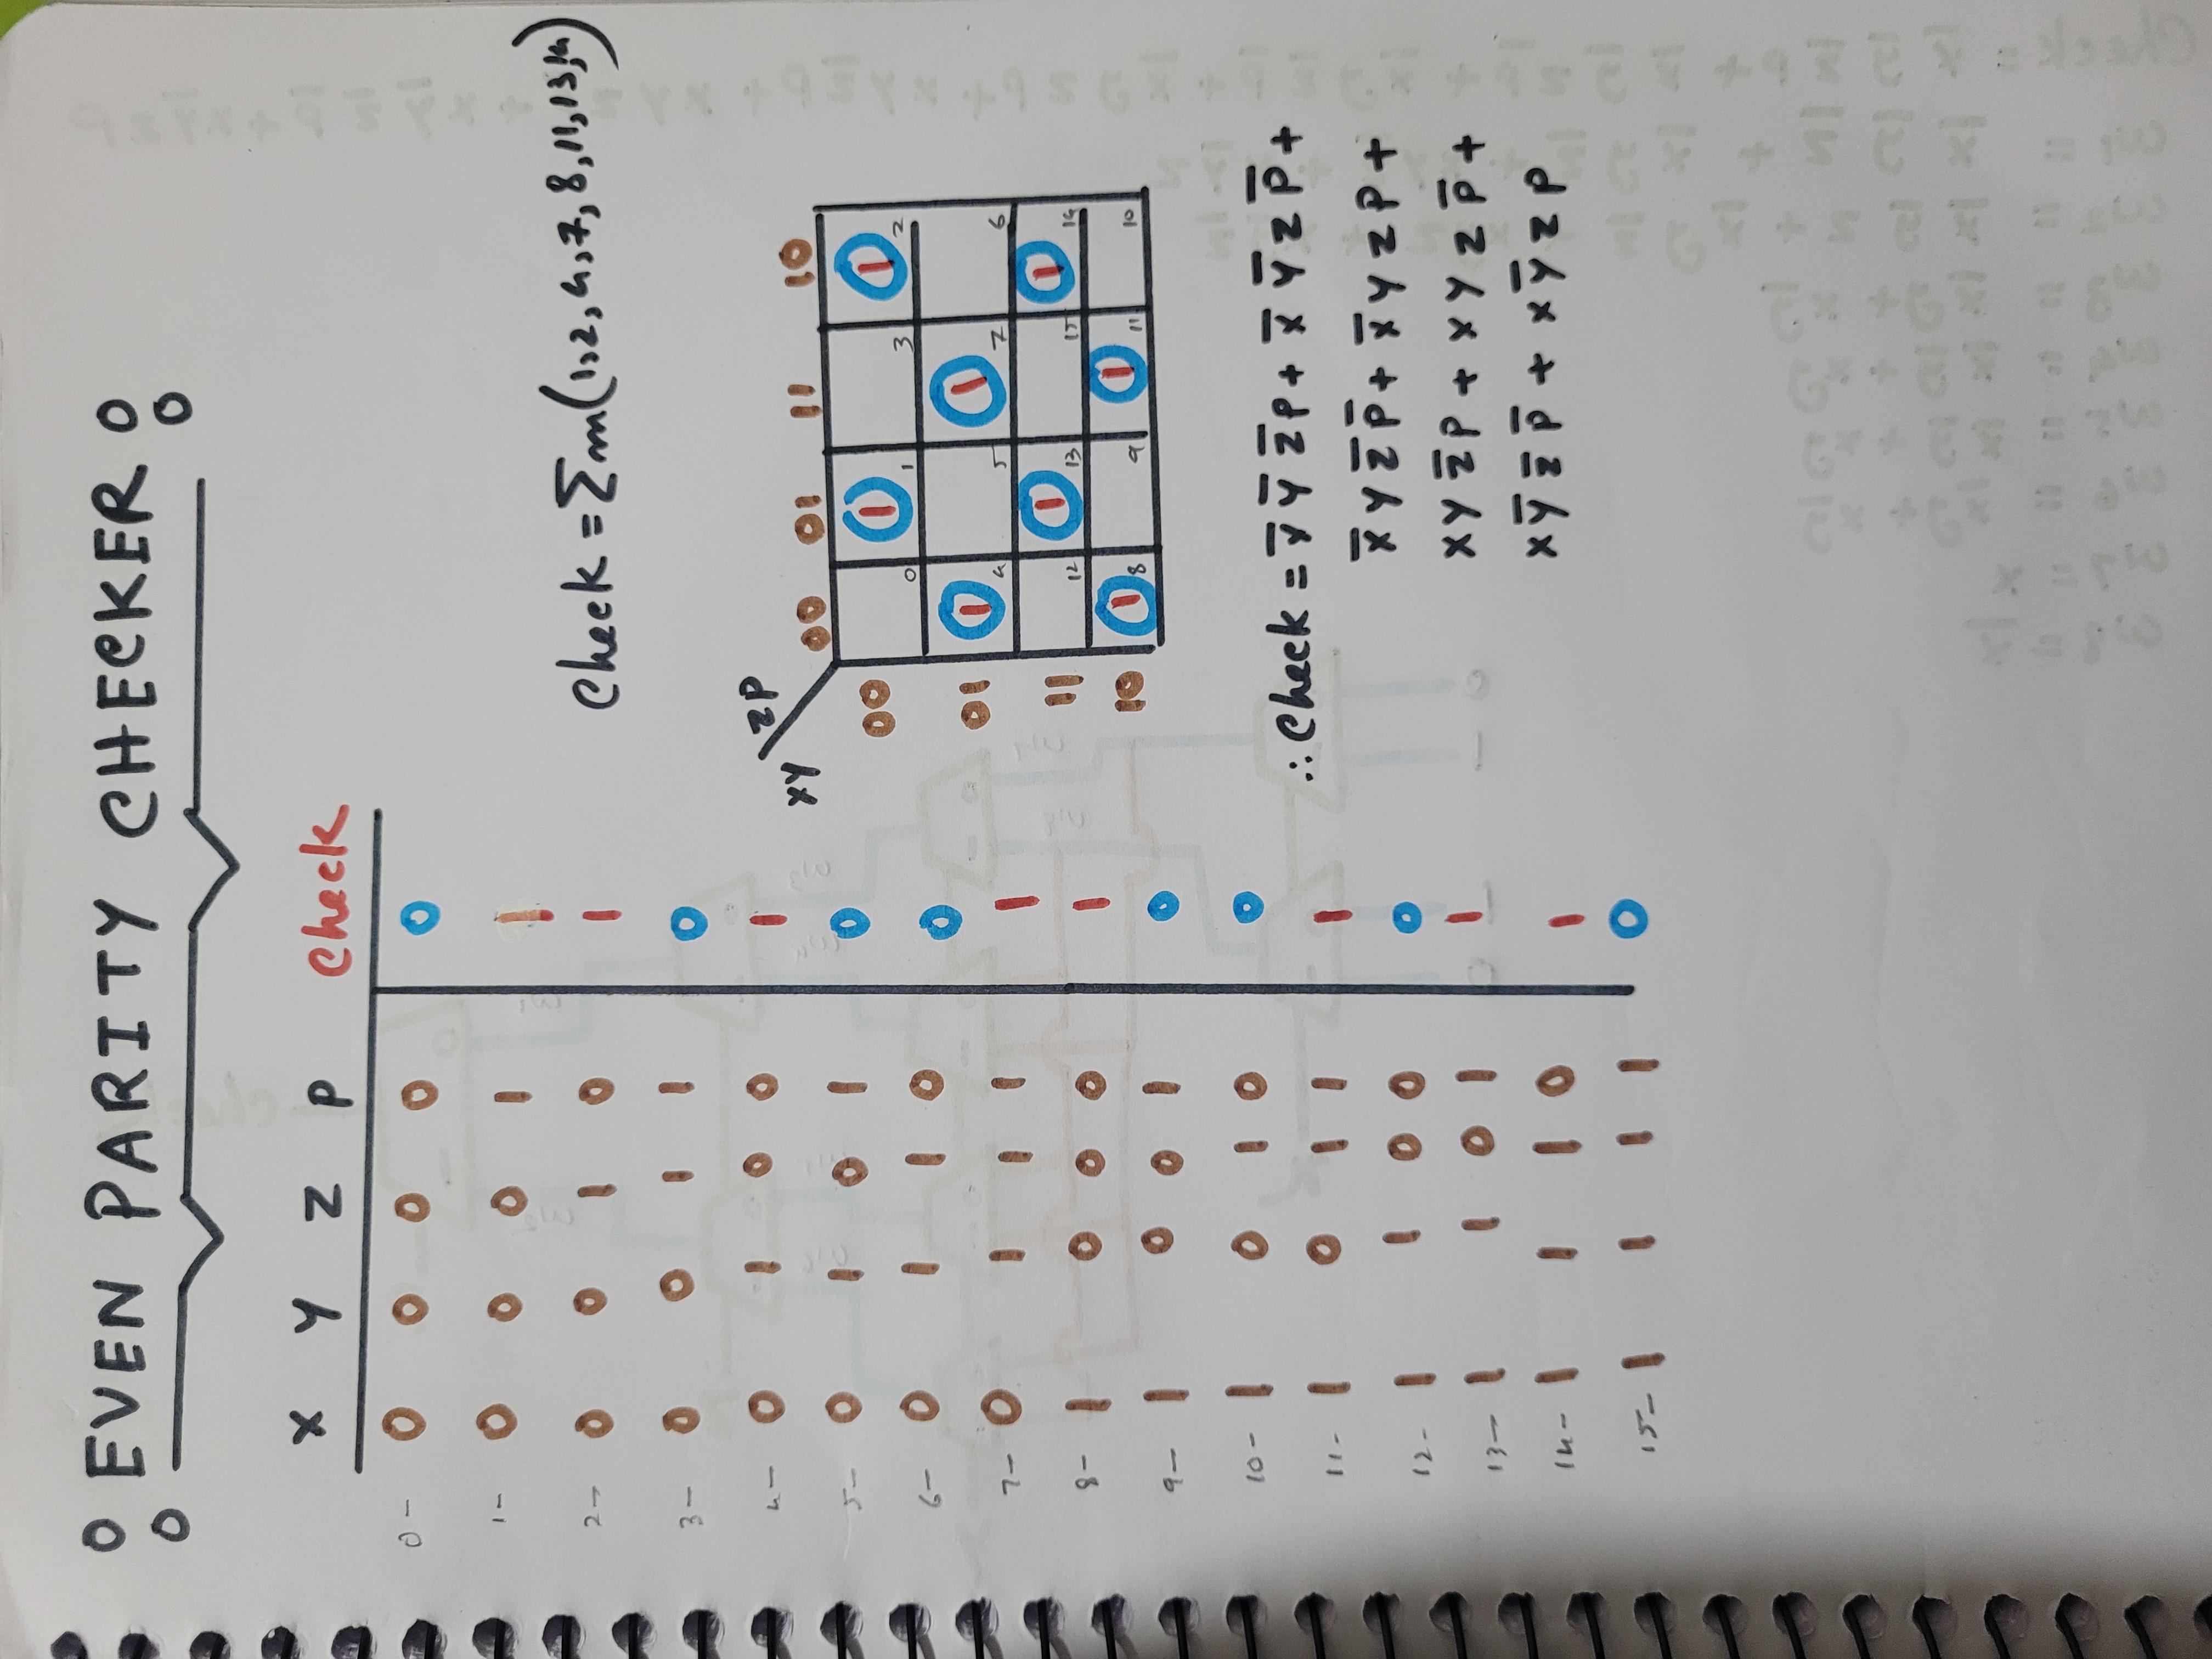 EVEN PARITY CHECKER
X Y Z P Check
0- 0 0 0 0 0
1- 0 0 0 1 1
2- 0 0 1 0 1
3- 0 0 1 1 0
4- 0 1 0 0 1
5- 0 1 0 1 0
6- 0 1 1 0 0
7- 0 1 1 1 1
8- 1 0 0 0 1
9- 1 0 0 1 0
10- 1 0 1 0 0
11- 1 0 1 1 1
12- 1 1 0 0 0
13- 1 1 0 1 1
14- 1 1 1 0 1
15- 1 1 1 1 0
Check = Σm(1,2,4,7,8,11,13,14)
ZP
XY
00 01 11 10
00 0 1 1 3 1 2
01 1 4 5 1 7 6
11 12 1 13 15 1 14
10 1 8 9 1 11 10
∴ Check = X̅ Y̅ Z̅ P + X̅ Y̅ Z P̅ +
X̅ Y Z̅ P̅ + X̅ Y Z P +
X Y Z̅ P + X Y Z P̅ +
X Y̅ Z̅ P̅ + X Y̅ Z P